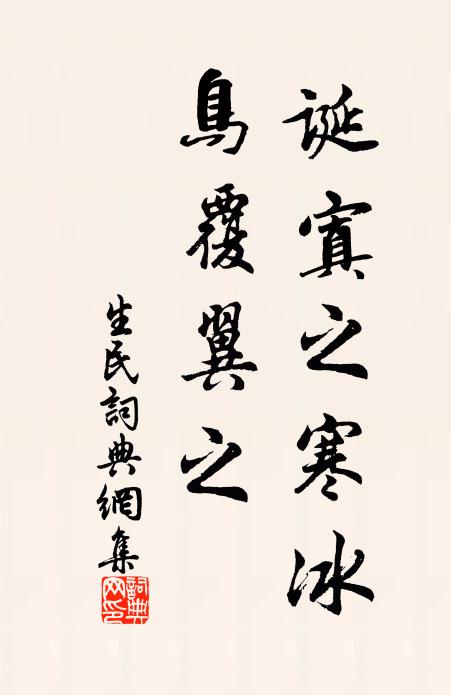 誕寘之寒冰
鳥覆翼之
生民詞典網集
詞典网印